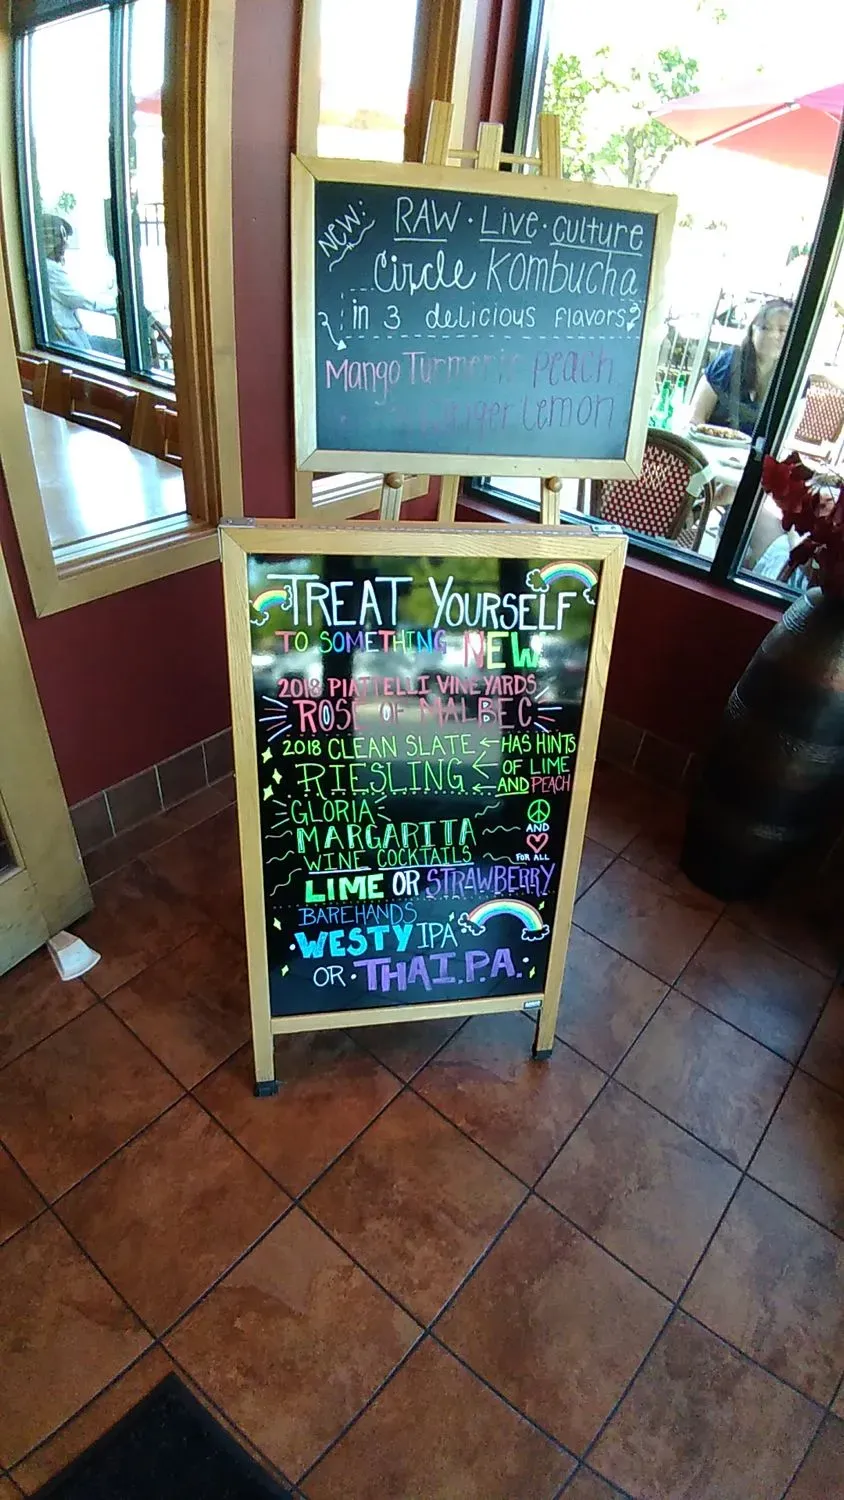 NEW:
RAW · Live · Culture
Circle Kombucha
in 3 delicious flavors?
Mango Turmeric Peach
Ginger Lemon
TREAT YOURSELF
TO SOMETHING NEW
2018 PIATTELLI VINEYARDS
ROSE OF MALBEC
2018 CLEAN SLATE ← HAS HINTS
RIESLING ← OF LIME
← AND PEACH
GLORIA
MARGARITA
AND
WINE COCKTAILS
FOR ALL
LIME OR STRAWBERRY
BAREHANDS
·WESTY IPA
OR · THAI.P.A.·